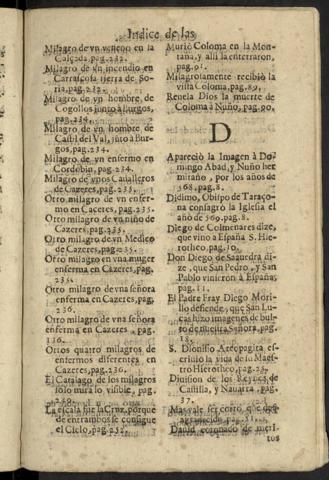 Indice de las
Milagro de vn veneno en la
Calçada, pag. 232.
Milagro de vn incendio en
Carrascosa tierra de So-
ria, pag. 232.
Milagro de vn hombre de
Cogollos junto à Burgos,
pag. 234.
Milagro de vn hombre de
Castil del Val, junto à Bur-
gos, pag. 234.
Milagro de vn enfermo en
Cordobin, pag. 234.
Milagro de vnos Caualleros
de Cazeres, pag. 235.
Otro milagro de vn enfer-
mo en Caceres, pag. 235.
Otro milagro de vn niño de
Cazeres, pag. 235.
Otro milagro de vn Medico
de Cazeres, pag. 235.
Otro milagro en vna muger
enferma en Cazeres, pag,
235.
Otro milagro de vna señora
enferma en Cazeres, pag.
236.
Otro milagro de vna señora
enferma en Cazeres, pag.
136.
Otros quatro milagros de
enfermos diferentes en
Cazeres, pag. 236.
El Catalago de los milagros
solo mira lo visible, pag.
240.
La escala fue la Cruz, porque
de entrambos se consigue
el Cielo, pag. 252.
Muriò Coloma en la Mon-
tana, y alli la enterraron,
pag. 91.
Milagrosamente recibiò la
vista Coloma, pag. 89.
Reuela Dios la muerte de
Coloma à Nuño, pag. 90.
D
Apareciò la Imagen à Do-
mingo Abad, y Nuño her
mitaño, por los años de
568. pag. 8.
Didimo, Obispo de Taraço-
na consagrò la Iglesia el
año de 569. pag. 8.
Diego de Colmenares dize,
que vino a España S. Hie-
roteo, pag. 10.
Don Diego de Saauedra di-
ze, que San Pedro, y San
Pablo vinieròn à España,
pag. 11.
El Padre Fray Diego Mori-
llo defiende, que San Lu-
cas hizo imagenes de bul-
to de nuestra Señora, pag.
13.
S. Dionisio Areopagita es-
criuiò la vida de su Maes-
tro Hieroteo, pag. 25.
Diuision de los Reynos de
Castilla, y Nauarra, pag.
37.
Mas vale ser corto, que des-
agradecido, pag. 51.
Dauid coronado de meri-
tos